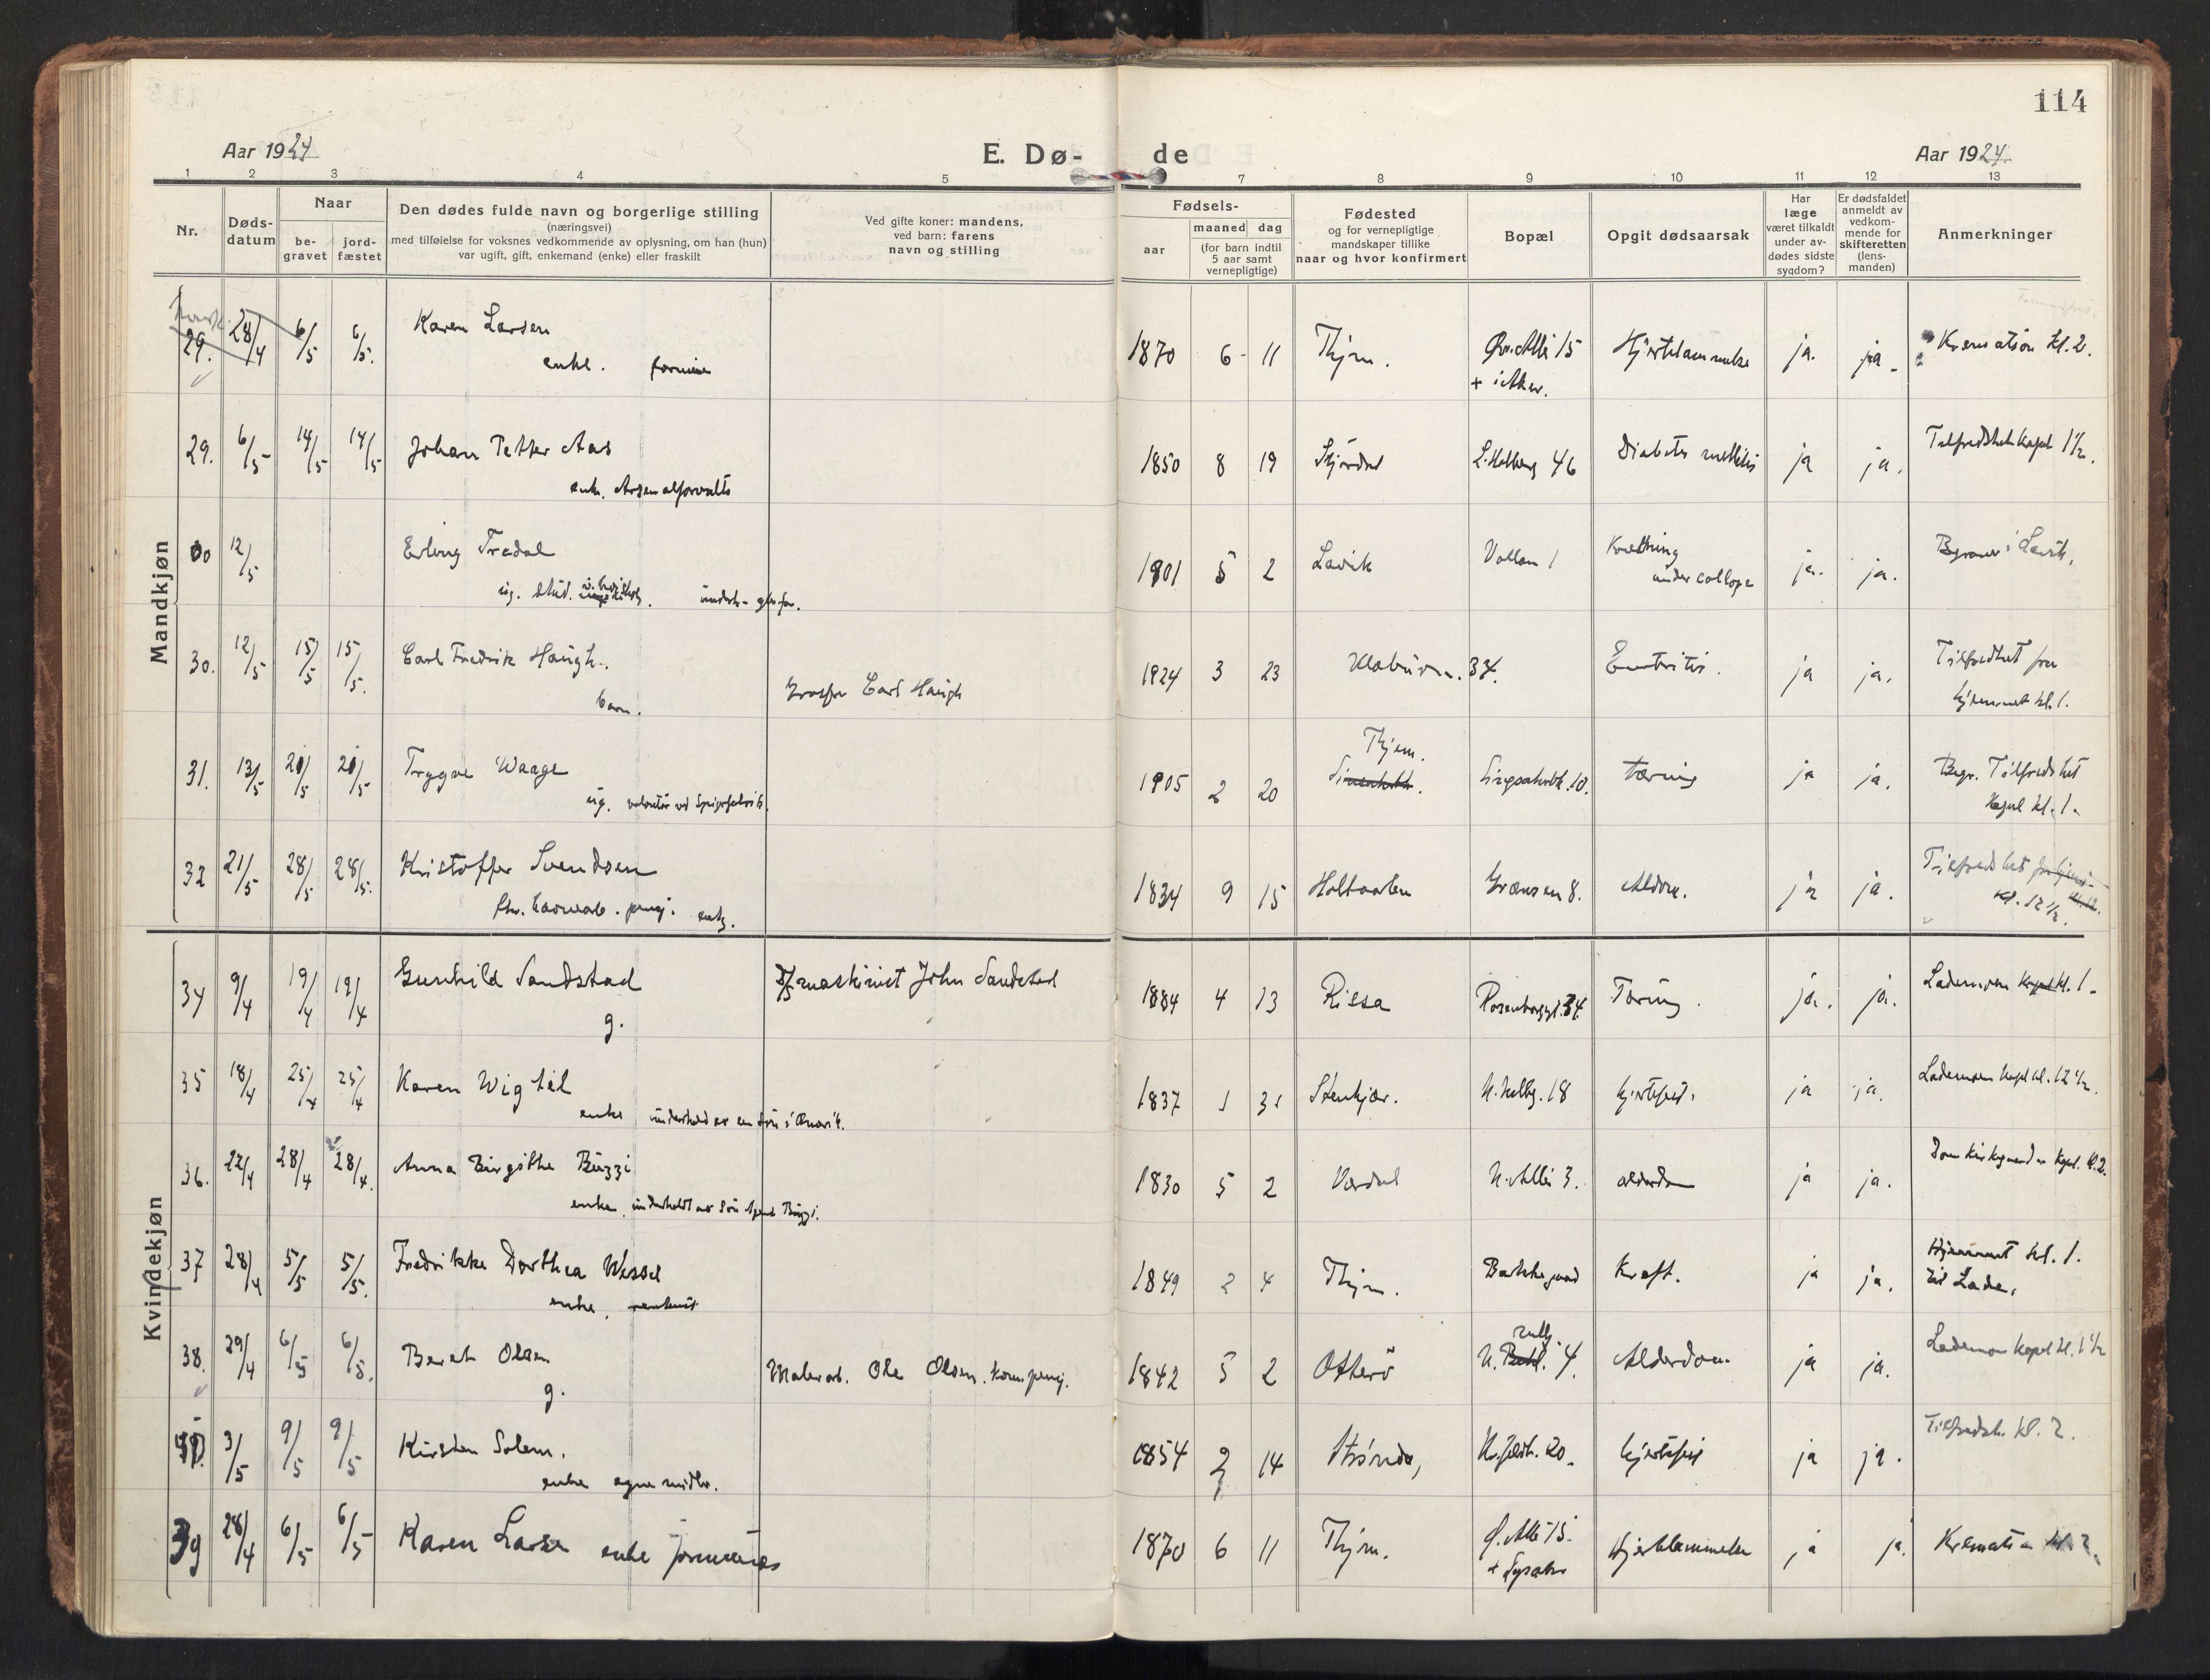 114
Aar 1924
E. Dø- de
Aar 1924.
1 2 3 4 5 7 8 9 10 11 12 13
Nr.
Døds-
datum
Naar
be-
gravet
jord-
fæstet
Den dødes fulde navn og borgerlige stilling
(næringsvei)
med tilføielse for voksnes vedkommende av oplysning, om han (hun)
var ugift, gift, enkemand (enke) eller fraskilt
Ved gifte koner: mandens,
ved barn: farens
navn og stilling
Fødsels-
aar
maaned dag
(for barn indtil
5 aar samt
vernepligtige)
Fødested
og for vernepligtige
mandskaper tillike
naar og hvor konfirmert
Bopæl
Opgit dødsaarsak
Har
læge
været tilkaldt
under av-
dødes sidste
sygdom?
Er dødsfaldet
anmeldt av
vedkom-
mende for
skifteretten
(lens-
manden)
Anmerkninger
Mandkjøn
29. 28/4 6/5 6/5. Karen Larsen 1870 6 11 Thjm. Øv. Allé 15 Hjertelammelse ja. ja. Kremation kl. 2.
enke. formue + i Aker.
29. 6/5 14/5 14/5 Johan Petter Aas 1850 8 19 Stjørdal L. Holberg 46 Diabetes mellitus ja ja. Tilfredshet kapel 1½.
enkem. Arsenalforvalter
30 12/5 Erling Fredal 1901 5 2 Lavik Vollan 1 Kvælning ja. ja. Begraves i Lavik.
ug. stud. under collaps
30. 12/5 15/5 15/5. Carl Fredrik Haugh. 1924 3 23 Klæbuv. 34. Enteritis. ja ja. Tilfredshet fra
barn. Carl Haugh hjemmet kl. 1.
31. 13/5 20/5 20/5 Trygve Waage 1905 2 20 Thjem. tæring ja ja. Begr. Tilfredshet
ug. volontør ved Spigerfabrik. Kapel kl. 1.
32 21/5 28/5 28/5. Kristoffer Svendsen 1834 9 15 Holtaalen Grænsen 8. Alderd. ja ja. Tilfredshet
pensj. enkem. kl. 12½.
Kvindekjøn
34 9/4 19/4 19/4 Gunhild Sandstad maskinist John Sandstad 1884 4 13 Rissa Rosenborggt. 34. Tæring. ja. ja. Lademoen Kapel kl. 1.
g.
35 18/4 25/4 25/4 Karen Wigtil 1837 1 31 Stenkjær. N. Kølbg. 18 hjertefeil. ja ja. Lademoen kapel kl. 12½.
enke underhold av en søn i Amerik.
36. 22/4 28/4 28/4. Anna Birgithe Buzzi 1830 5 2 Værdal N. Allé 3. alderdom ja ja. Domkirkegaarden Kapel. kl. 2.
enke. underholdt av søn Agent Buzzi.
37 28/4 5/5 5/5. Fredrikke Dorthea Wessel 1849 2 4 Thjm. Bakkegaard Kræft. ja ja. Hjemmet kl. 1.
enke. til Lade.
38. 29/4 6/5 6/5. Beret Olsen Malerarb. Ole Olsen. 1842 5 2 Otterö N. 4. Alderdom ja ja. Lademoen Kapel kl. 1½
g.
40. 3/5 9/5 9/5 Kirsten Solem. 1854 2 14 Strinda, 20. hjertefeil ja ja. Tilfredsh. kl. 2.
enke egne midler.
39 28/4 6/5 6/5 Karen Larsen enke formues 1870 6 11 Thjm. Ø. Allé 15. Hjertelammelse ja ja. Kremation kl. 2.